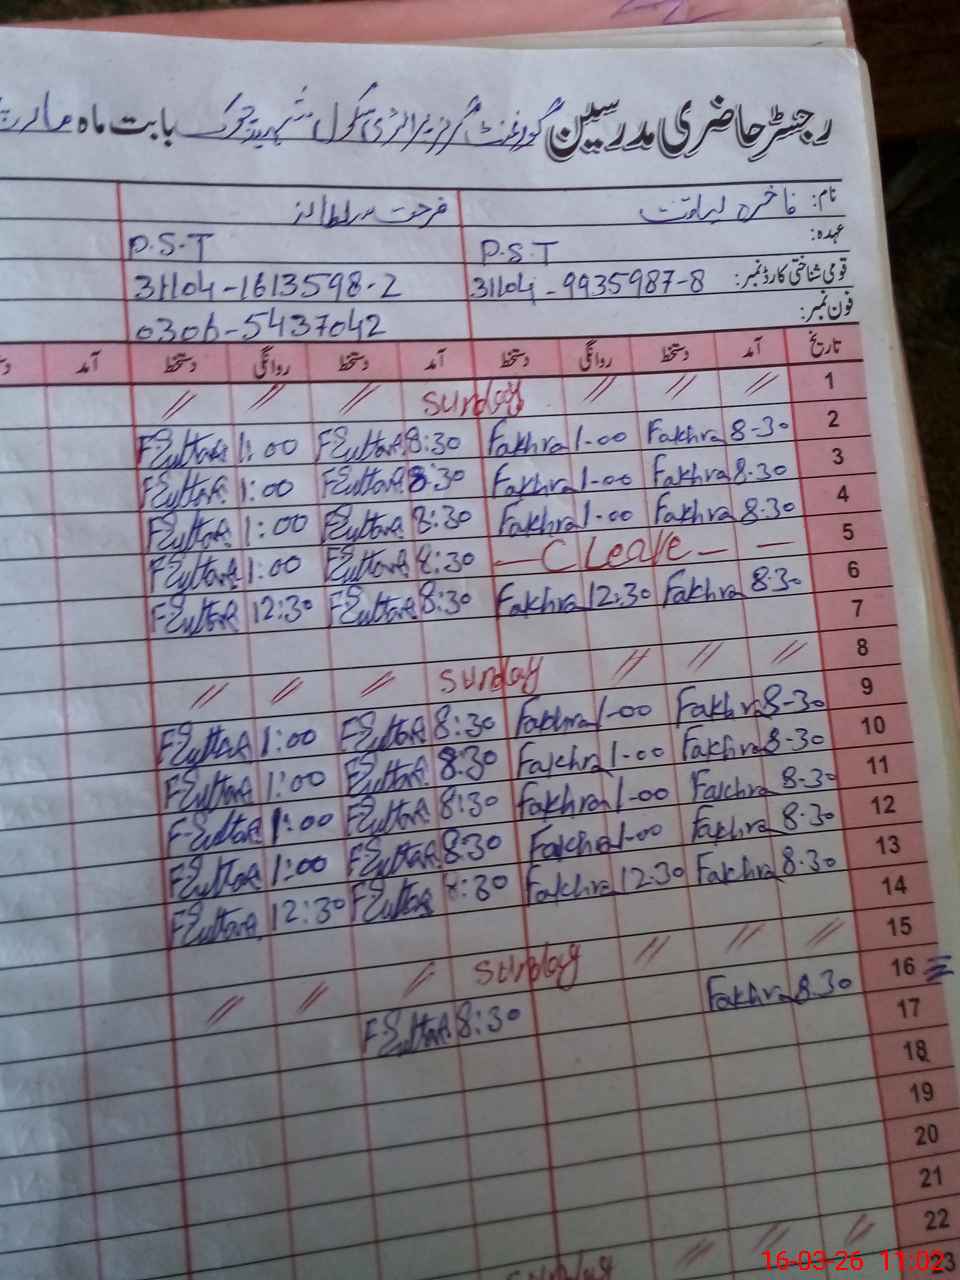 رجسٹر حاضری مدرسین گورنمنٹ گرلز پرائمری سکول شہید چوک بابت ماہ مارچ
نام: فاخرہ لیاقت فرحت سلطانہ
عہدہ: P.S.T P.S.T
قومی شناختی کارڈ نمبر: 31104-9935987-8 31104-1613598-2
فون نمبر: 0306-5437042
تاریخ آمد دستخط روانگی دستخط آمد دستخط روانگی دستخط آمد
1 Sunday
2 8-30 Fakhra 1-00 Fakhra 8:30 FSultana 1:00 FSultana
3 8.30 Fakhra 1-00 Fakhra 8.30 FSultana 1:00 FSultana
4 8.30 Fakhra 1-00 Fakhra 8:30 FSultana 1:00 FSultana
5 — C Leave — — 8:30 FSultana 1:00 FSultana
6 8.30 Fakhra 12:30 Fakhra 8:30 FSultana 12:30 FSultana
7
8 Sunday
9 8-30 Fakhra 1-00 Fakhra 8:30 FSultana 1:00 FSultana
10 8-30 Fakhra 1-00 Fakhra 8:30 FSultana 1:00 FSultana
11 8-30 Fakhra 1-00 Fakhra 8:30 FSultana 1:00 F-Sultana
12 8.30 Fakhra 1-00 Fakhra 8:30 FSultana 1:00 FSultana
13 8.30 Fakhra 12.30 Fakhra 8:30 FSultana 12:30 FSultana
14
15 Sunday
16 8.30 Fakhra 8:30 F-Sultana
17
18
19
20
21
22 Sunday
23
16-03-26 11:02